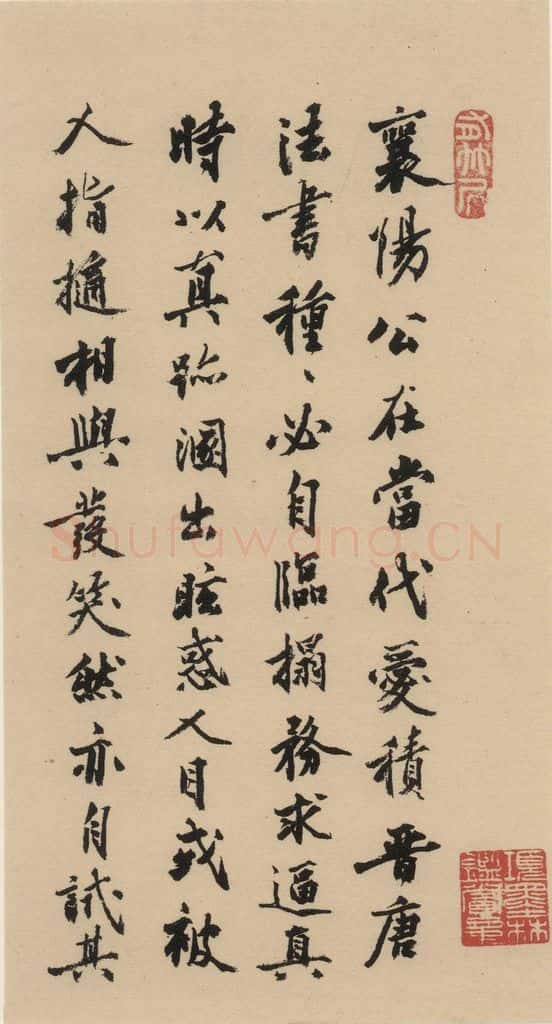 襄陽公在當代愛積晉唐
法書種〻必自臨搨務求逼真
時以真跡溷出眩惑人目或被
人指擿相與發笑然亦自試其
Shufawang.CN